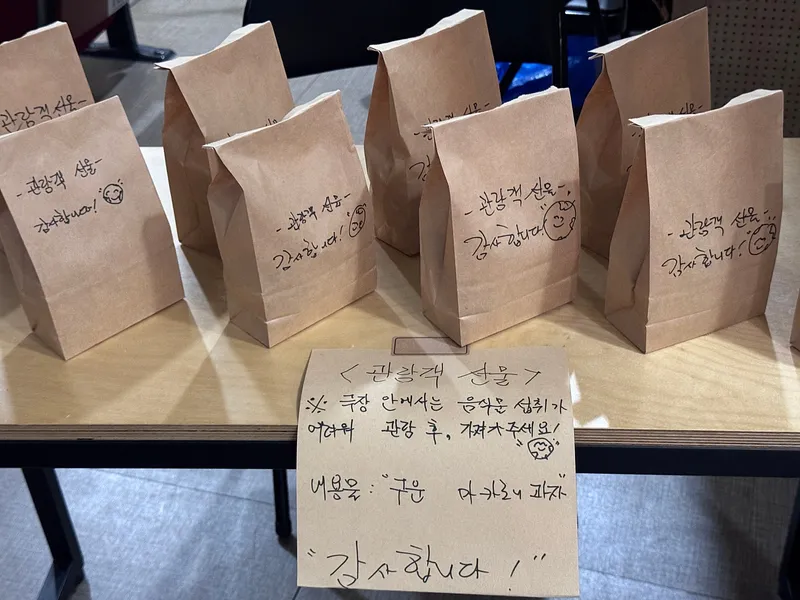 관람객 선물
-관람객 선물-
감사합니다!
-관람객 선물-
감사합니다!
-관람객 선물-
감사합니다!
-관람객 선물-
감사합니다!
<관람객 선물>
※ 극장 안에서는 음식물 섭취가
어려워 관람 후, 가져가주세요!
내용물 : "구운 마카로니 과자"
"감사합니다!"